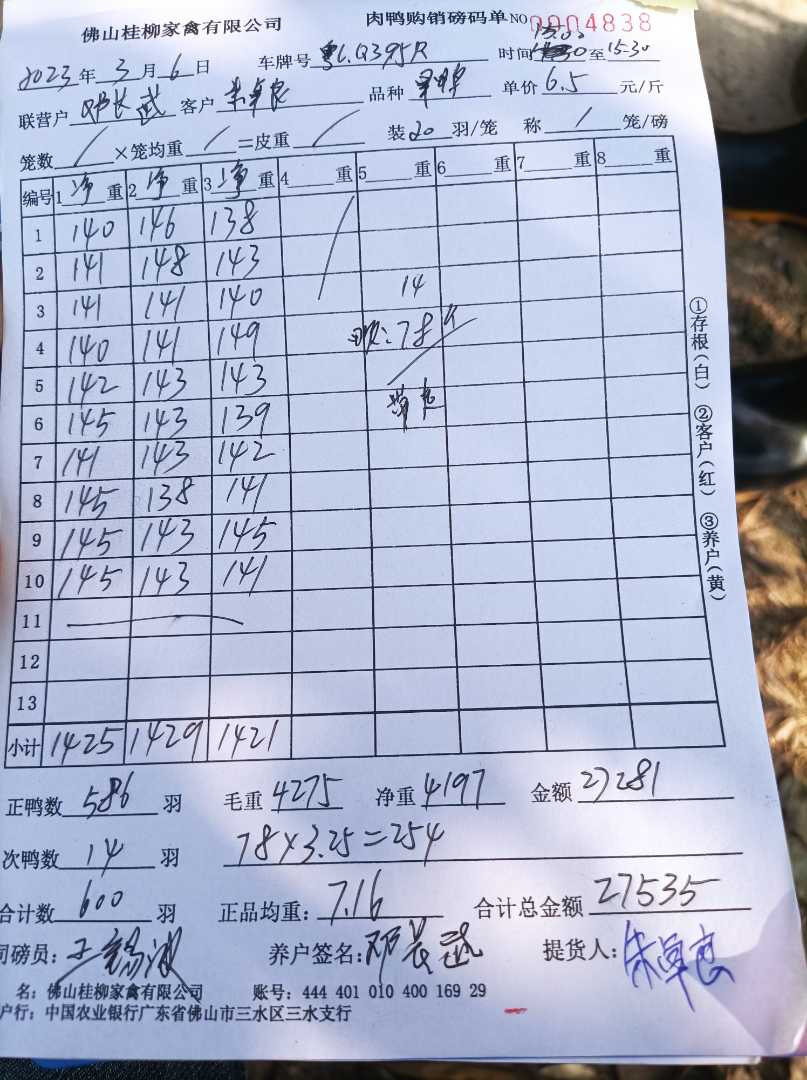 佛山桂柳家禽有限公司 肉鸭购销磅码单 NO 0004838
2023年3月6日 车牌号 粤L.Q395R 时间 至15:30
联营户 邓长武 客户 朱卓良 品种 单价 6.5 元/斤
笼数 / ×笼均重 / =皮重 / 装20羽/笼 称 / 笼/磅
编号 1净重 2净重 3净重 4重 5重 6重 7重 8重
1 140 146 138
2 141 148 143
3 141 141 140 14
4 140 141 149 78斤
5 142 143 143
6 145 143 139
7 141 143 142
8 145 138 141
9 145 143 145
10 145 143 141
11
12
13
小计 1425 1429 1421
正鸭数 586 羽 毛重 4275 净重 4197 金额 27281
次鸭数 14 羽 78×3.25=254
合计数 600 羽 正品均重: 7.16 合计总金额 27535
司磅员: 王锡波 养户签名: 邓长武 提货人: 朱卓良
名: 佛山桂柳家禽有限公司 账号: 444 401 010 400 169 29
户行: 中国农业银行广东省佛山市三水区三水支行
①存根(白) ②客户(红) ③养户(黄)